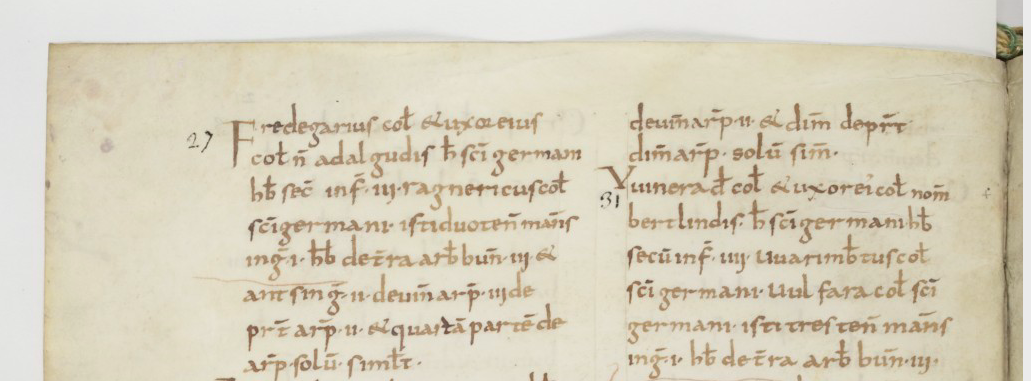 27 Fredegarius col̄ & uxor eius
col̄ n̄ adalgudis h̄ sc̄i germani
hb̄ sec̄ inf̄·iii·ragnericus col̄
sc̄i germani· isti duo ten̄ mān̄s
ing̃·i· hb̄ de t̄ra arb̄ bun̄·iii·&
antsing̃·ii·de uin̄ arp̄·iii de
pr̄t arp̄·ii·& quartā partē de
arp̄·solū· simil̄t·
de uin̄ arp̄·ii·& dim̄ de pr̄t
dim̄ arp̄· solū sim̄·
31 Vuinerad̄ col̄ & uxor ei' col̄ nom̄
bertlindis· h̄ sc̄i germani hb̄
secū inf̄·iiii·uuarimb̄tus col̄
sc̄i germani·uulfara col̄ sc̄i
germani·isti tres ten̄ mān̄s
ing̃·i· hb̄ de t̄ra arb̄ bun̄·iii·